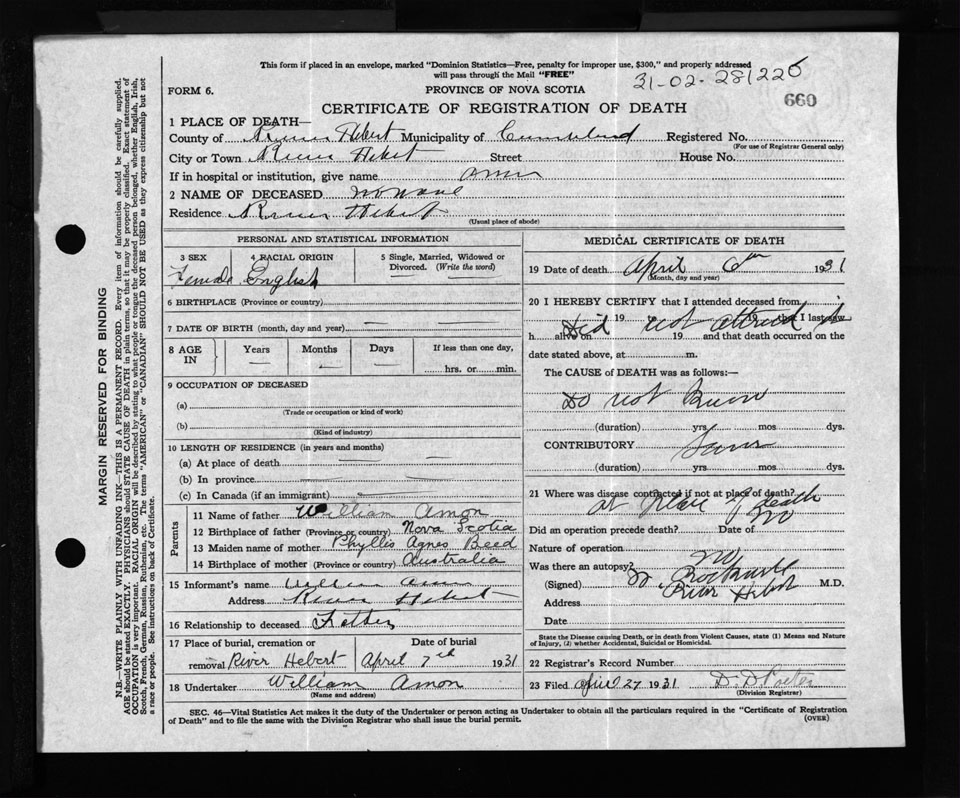 This form if placed in an envelope, marked "Dominion Statistics—Free, penalty for improper use, $300," and properly addressed
will pass through the Mail "FREE"
31-02-281220
FORM 6.
PROVINCE OF NOVA SCOTIA
660
CERTIFICATE OF REGISTRATION OF DEATH
1 PLACE OF DEATH—
County of River Hebert Municipality of Cumberland Registered No.
(For use of Registrar General only)
City or Town River Hebert Street House No.
If in hospital or institution, give name Amon
2 NAME OF DECEASED no name
Residence River Hebert
(Usual place of abode)
PERSONAL AND STATISTICAL INFORMATION
3 SEX 4 RACIAL ORIGIN 5 Single, Married, Widowed or Divorced. (Write the word)
Female English
6 BIRTHPLACE (Province or country)
7 DATE OF BIRTH (month, day and year)
8 AGE IN Years Months Days If less than one day,
hrs. or min.
9 OCCUPATION OF DECEASED
(a)
(Trade or occupation or kind of work)
(b)
(Kind of industry)
10 LENGTH OF RESIDENCE (in years and months)
(a) At place of death
(b) In province
(c) In Canada (if an immigrant)
Parents
11 Name of father William Amon
12 Birthplace of father (Province or country) Nova Scotia
13 Maiden name of mother Phyllis Agnes Beed
14 Birthplace of mother (Province or country) Australia
15 Informant's name William Amon
Address River Hebert
16 Relationship to deceased Father
17 Place of burial, cremation or Date of burial
removal River Hebert April 7th 1931
18 Undertaker William Amon
(Name and address)
MEDICAL CERTIFICATE OF DEATH
19 Date of death April 6th 1931
(Month, day and year)
20 I HEREBY CERTIFY that I attended deceased from
19 19 that I last saw
Did not attend
h alive on 19 and that death occurred on the
date stated above, at m.
The CAUSE of DEATH was as follows:—
Do not Know
(duration) yrs mos dys.
CONTRIBUTORY Same
(duration) yrs mos dys.
21 Where was disease contracted if not at place of death?
at place of death
Did an operation precede death? No Date of
Nature of operation
Was there an autopsy? No
(Signed) Rockwell M.D.
Address River Hebert
Date
State the Disease causing Death, or in death from Violent Causes, state (1) Means and Nature
of Injury, (2) whether Accidental, Suicidal or Homicidal.
22 Registrar's Record Number
23 Filed April 27 1931 D. D.
(Division Registrar)
SEC. 46—Vital Statistics Act makes it the duty of the Undertaker or person acting as Undertaker to obtain all the particulars required in the "Certificate of Registration
of Death" and to file the same with the Division Registrar who shall issue the burial permit.
(OVER)
MARGIN RESERVED FOR BINDING
N.B.—WRITE PLAINLY WITH UNFADING INK—THIS IS A PERMANENT RECORD. Every item of information should be carefully supplied.
AGE should be stated EXACTLY. PHYSICIANS should STATE CAUSE OF DEATH in plain terms, so that it may be properly classified. Exact statement of
OCCUPATION is very important. RACIAL ORIGIN will be described by stating to what people or tongue the deceased person belonged, whether English, Irish,
Scotch, French, German, Russian, Ruthenian, etc. The terms "AMERICAN" or "CANADIAN" SHOULD NOT BE USED as they express citizenship but not
a race or people. See instructions on back of Certificate.